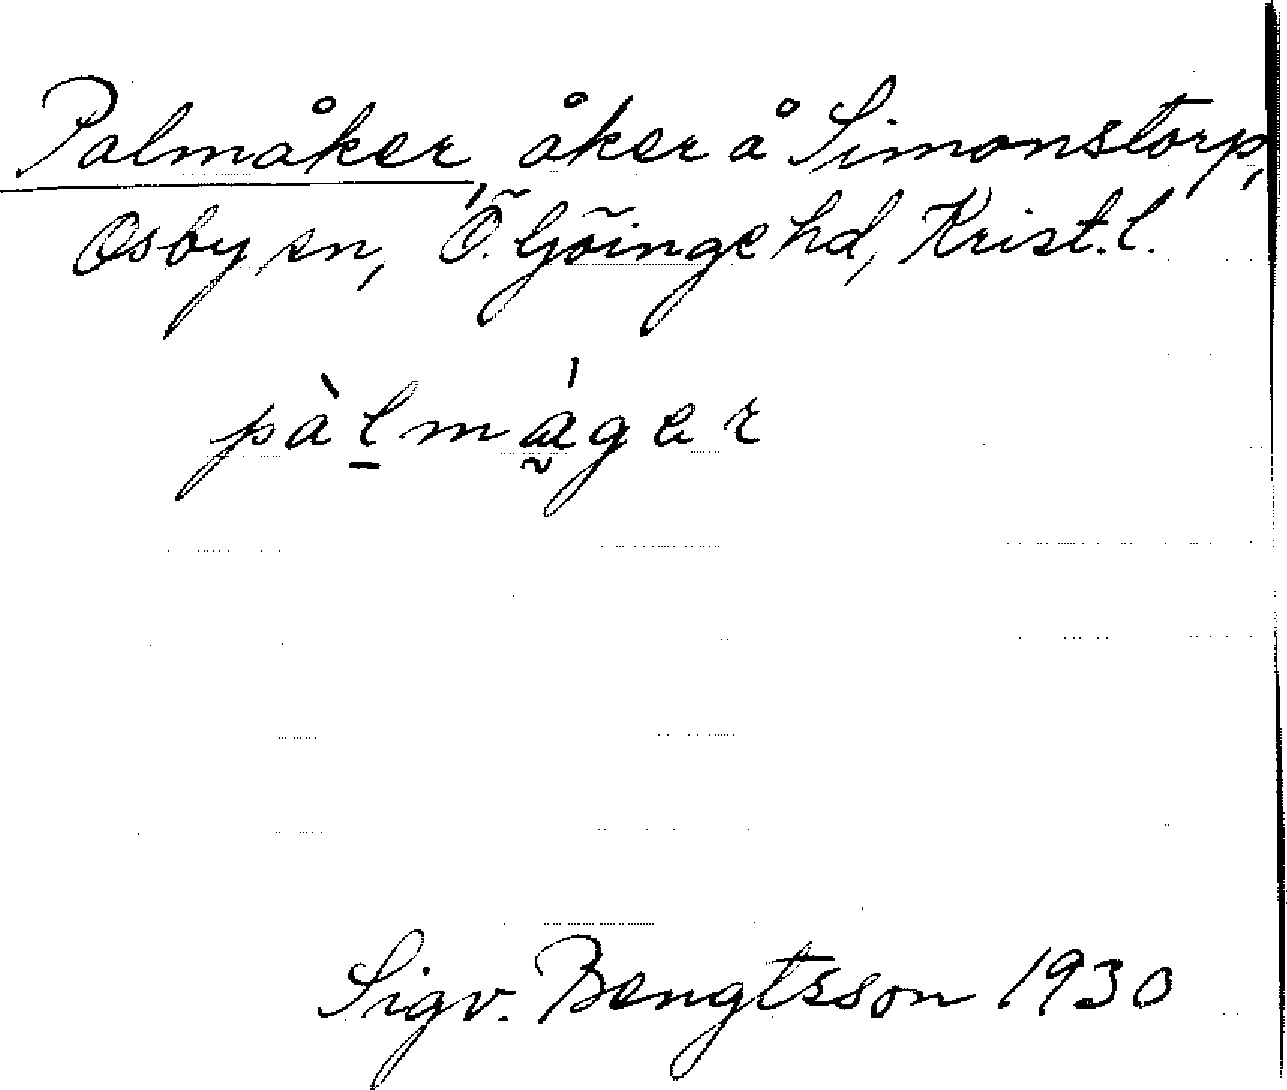 Palmåker, åker å Simonstorp,
Osby sn, Ö. Göinge hd, Krist. l.
pàlmáger
Sigv. Bengtsson 1930